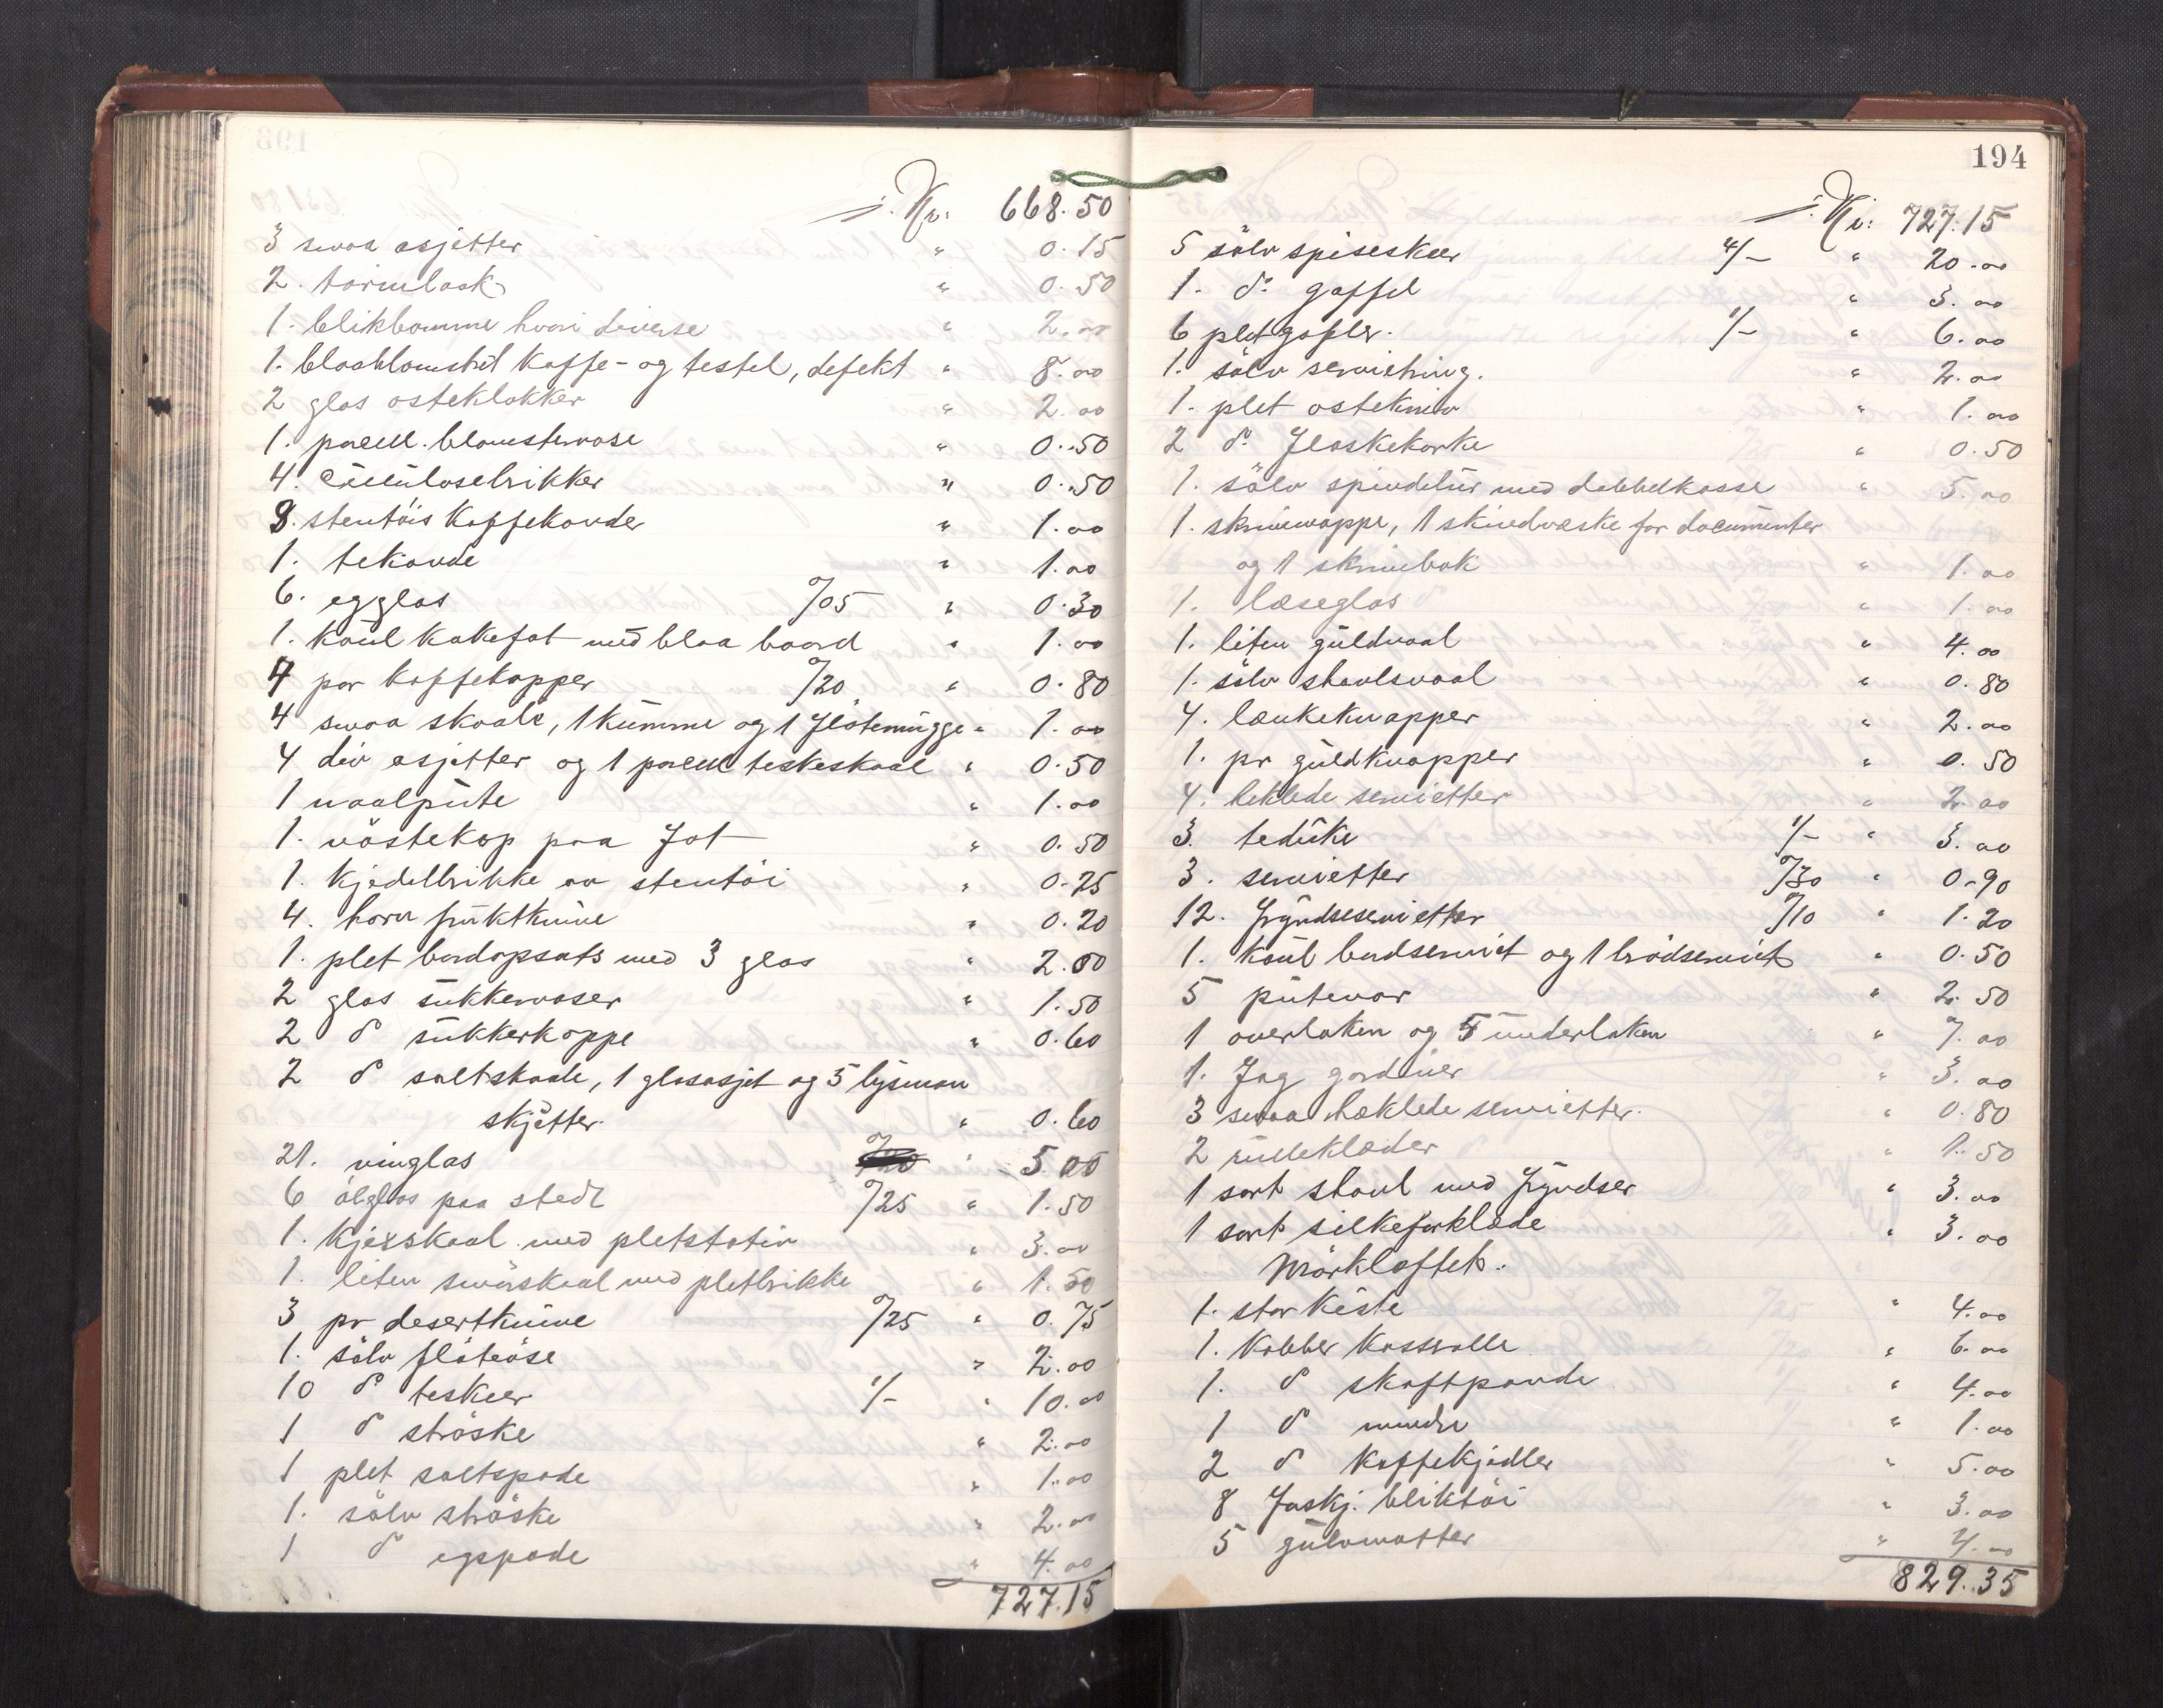 ÷ Kr. 668.50
3 smaa asjetter " 0.15
2. tarinlaak " 0.50
1. blikbomme hvori diverse " 2.00
1. blaablomstret kaffe- og testel, defekt " 8.00
2 glas osteklokker " 2.00
1. porcell. blomstervase " 0.50
4. Celulosebrikker " 0.50
3. stentöis kaffekander " 1.00
1. tekande " 1.00
6. egglas %05 " 0.30
1. kaul kakefat med blaa baard " 1.00
4 par kaffekopper %20 " 0.80
4 smaa skaale, 1 kumme og 1 flötemugge " 1.00
4 div asjetter og 1 porcell teskeskaal " 0.50
1 naalpute " 1.00
1. nöstekop paa fot " 0.50
1. kjedelbrikke av stentöi " 0.25
4. horn fruktknive " 0.20
1. plet bordopsats med 3 glas " 2.00
2 glas sukkervaser " 1.50
2 do sukkerkoppe " 0.60
2 do saltskaale, 1 glasasjet og 5 lysman
skjetter. " 0.60
21. vinglas " 5.00
6 ölglas paa stedt %25 " 1.50
1. kjexskaal med pletstativ " 3.00
1. liten smörskaal med pletbrikke " 1.50
3 pr desertknive %25 " 0.75
1. sölv flöteöse " 2.00
10 do teskeer 1/- " 10.00
1 do ströske " 2.00
1 plet saltspade " 1.00
1. sölv ströske " 2.00
1 do egspade " 4.00
727.15
194
÷ Kr. 727.15
5 sölv spiseskeer 4/- " 20.00
1. do gaffel " 3.00
6 pletgafler. 1/- " 6.00
1. sölv servietring. " 2.00
1. plet ostekniv " 1.00
2 do flaskekorke " 0.50
1. sölv spindelur med dobbelkasse " 5.00
1. skrivemappe, 1 skindvæske for documenter
og 1 skrivebok " 1.00
1. læseglas " 1.00
1. liten guldnaal " 4.00
1. sölv shavlsnaal " 0.80
4. lænkeknapper " 2.00
1. pr guldknapper " 0.50
4. heklede servietter " 2.00
3. teduke 1/- " 3.00
3. servietter %30 " 0.90
12. fryndseservietter %10 " 1.20
1. kaul bordserviet og 1 brödserviet " 0.50
5 putevar " 2.50
1 overlaken og 5 underlaken " 7.00
1. fag gardiner " 3.00
3 smaa heklede servietter. " 0.80
2 rulleklæder " 1.50
1 sort shavl med fryndser " 3.00
1 sort silkeforklæde " 3.00
Mörkloftet.
1. stor kiste " 4.00
1. kobber kasserolle " 6.00
1. do skaftpande " 4.00
1 do mindre " 1.00
2 do kaffekjedler " 5.00
8 forskj. bliktöi " 3.00
5 gulvmatter " 4.00
829.35